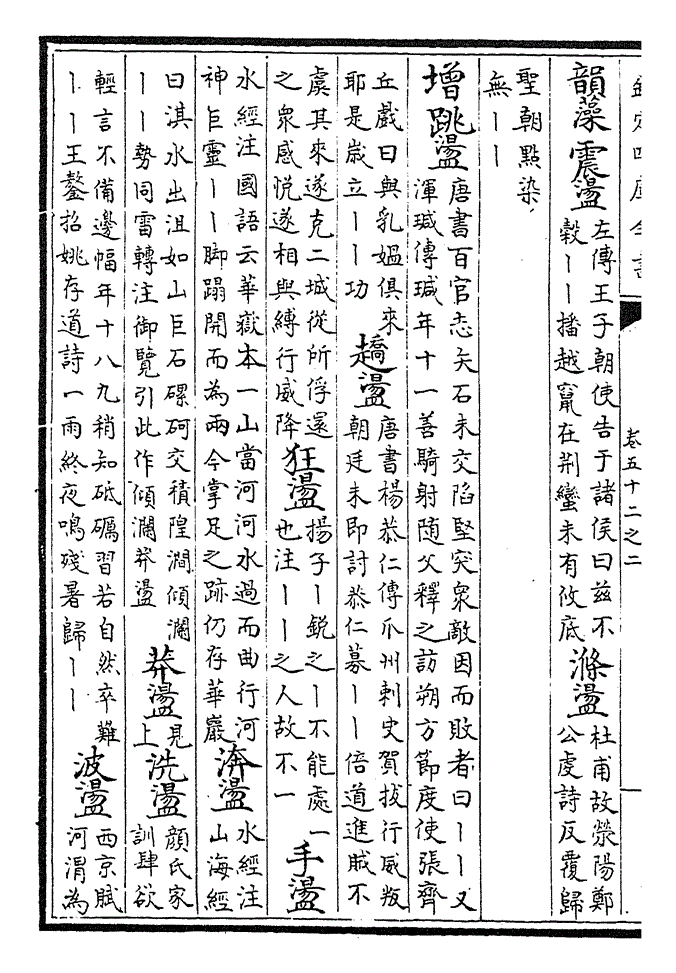 欽定四庫全書
卷五十二之二
韻藻
震盪
左傳王子朝使告于諸侯曰茲不
穀丨丨播越竄在荆蠻未有攸底
滌盪
杜甫故滎陽鄭
公虔詩反覆歸
聖朝點染
無丨丨
增
跳盪
唐書百官志矢石未交陷堅突衆敵因而敗者曰丨丨又
渾瑊傳瑊年十一善騎射隨父釋之訪朔方節度使張齊
丘戲曰與乳媪俱來
耶是歲立丨丨功
趫盪
唐書楊恭仁傳爪州刺史賀拔行威叛
朝廷未即討恭仁募丨丨倍道進賊不
虞其來遂克二城從所俘還
之衆感悦遂相與縛行威降
狂盪
揚子丨銳之丨不能處一
也注丨丨之人故不一
手盪
水經注國語云華嶽本一山當河河水過而曲行河
神巨靈丨丨脚蹋開而為兩今掌足之跡仍存華巖
渀盪
水經注
山海經
曰淇水出沮如山巨石磥砢交積隍澗傾瀾
丨丨勢同雷轉注御覽引此作傾瀾莽盪
莽盪
見
上
洗盪
顔氏家
訓肆欲
輕言不備邊幅年十八九稍知砥礪習若自然卒難
丨丨王鏊招姚存道詩一雨終夜鳴殘暑歸丨丨
波盪
西京賦
河渭為